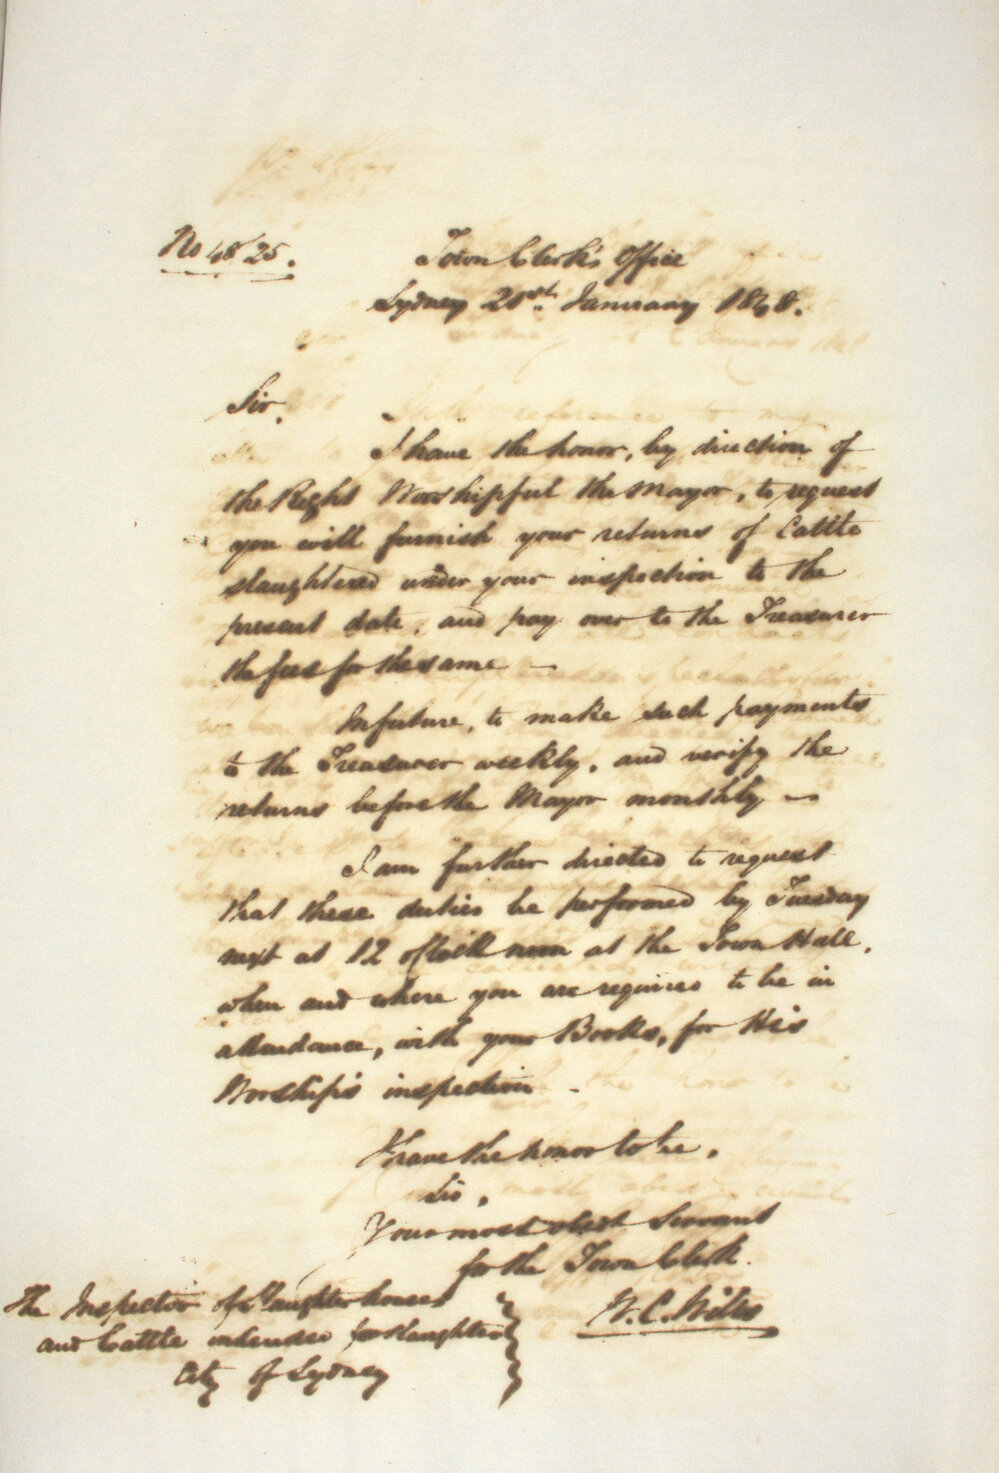 No 48/25.
Town Clerk's Office
Sydney 21st. January 1848.
Sir,
I have the honor, by direction of
the Right Worshipful the Mayor, to request
you will furnish your returns of Cattle
slaughtered under your inspection to the
present date, and pay over to the Treasurer
the fees for the same —
In future, to make such payments
to the Treasurer weekly, and verify the
returns before the Mayor monthly —
I am further directed to request
that these duties be performed by Tuesday
next at 12 o'Clock noon at the Town Hall,
when and where you are required to be in
attendance, with your Books, for His
Worship's inspection -
I have the honor to be,
Sir,
Your most obedt Servant
for the Town Clerk.
W. C. Wills
The Inspector of Slaughter houses
and Cattle intended for slaughter
City of Sydney